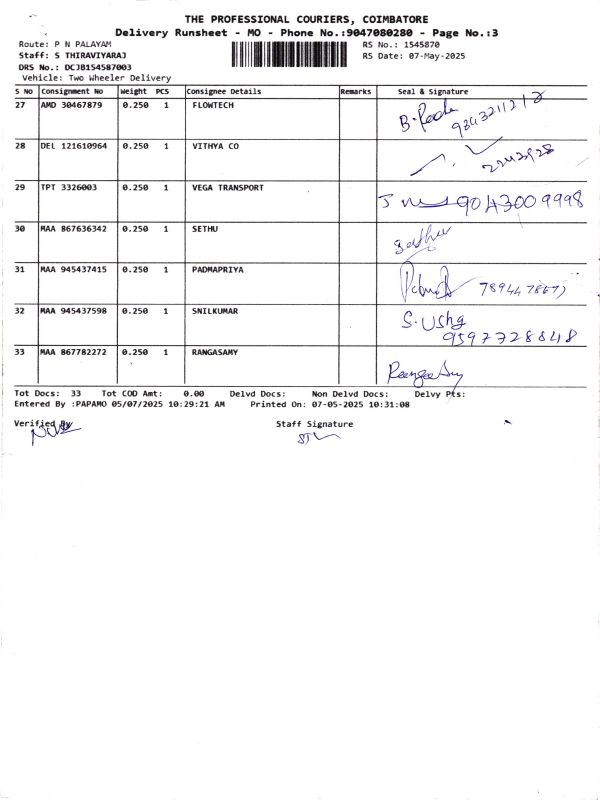 THE PROFESSIONAL COURIERS, COIMBATORE
Delivery Runsheet - MO - Phone No.:9047080280 - Page No.:3
Route: P N PALAYAM RS No.: 1545870
Staff: S THIRAVIYARAJ RS Date: 07-May-2025
DRS No.: DCJB1545870O3
Vehicle: Two Wheeler Delivery
S No Consignment No Weight PCS Consignee Details Remarks Seal & Signature
27 AMD 30467879 0.250 1 FLOWTECH B.
28 DEL 121610964 0.250 1 VITHYA CO
29 TPT 3326003 0.250 1 VEGA TRANSPORT 9043009998
30 MAA 867636342 0.250 1 SETHU Sethu
31 MAA 945437415 0.250 1 PADMAPRIYA
32 MAA 945437598 0.250 1 SNILKUMAR S. Usha
9597728648
33 MAA 867782272 0.250 1 RANGASAMY
Tot Docs: 33 Tot COD Amt: 0.00 Delvd Docs: Non Delvd Docs: Delvy Pts:
Entered By :PAPAMO 05/07/2025 10:29:21 AM Printed On: 07-05-2025 10:31:08
Verified By Staff Signature